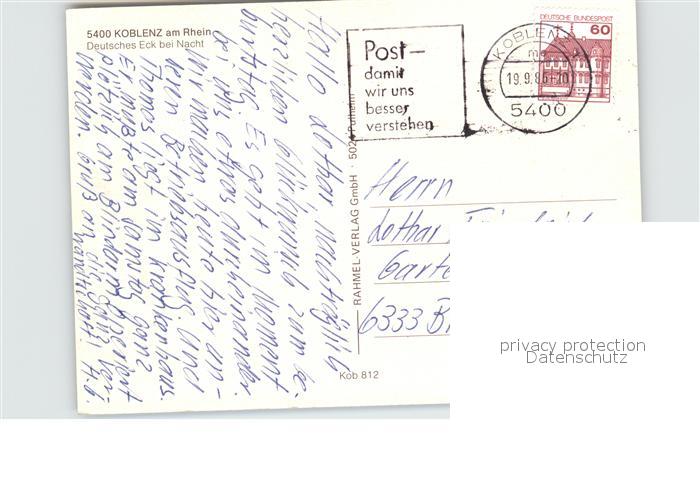 5400 KOBLENZ am Rhein
Deutsches Eck bei Nacht
Hallo Lothar, nachträglich
herzlichen Glückwunsch zum Ge-
burtstag. Es geht im Moment
bei uns etwas durcheinander.
Wir machen heute hier un-
seren Betriebsausflug und
Thomas liegt im Krankenhaus.
Er mußte am Samstag ganz
plötzlich am Blinddarm operiert
werden. Gruß an die ganze
Post-
damit
wir uns
besser
verstehen
KOBLENZ
19.9.86-10
5400
DEUTSCHE BUNDESPOST
60
RAHMEL-VERLAG GmbH · 5024 Pulheim
Herrn
Lothar
Garte
6333 B
Kob 812
privacy protection
Datenschutz